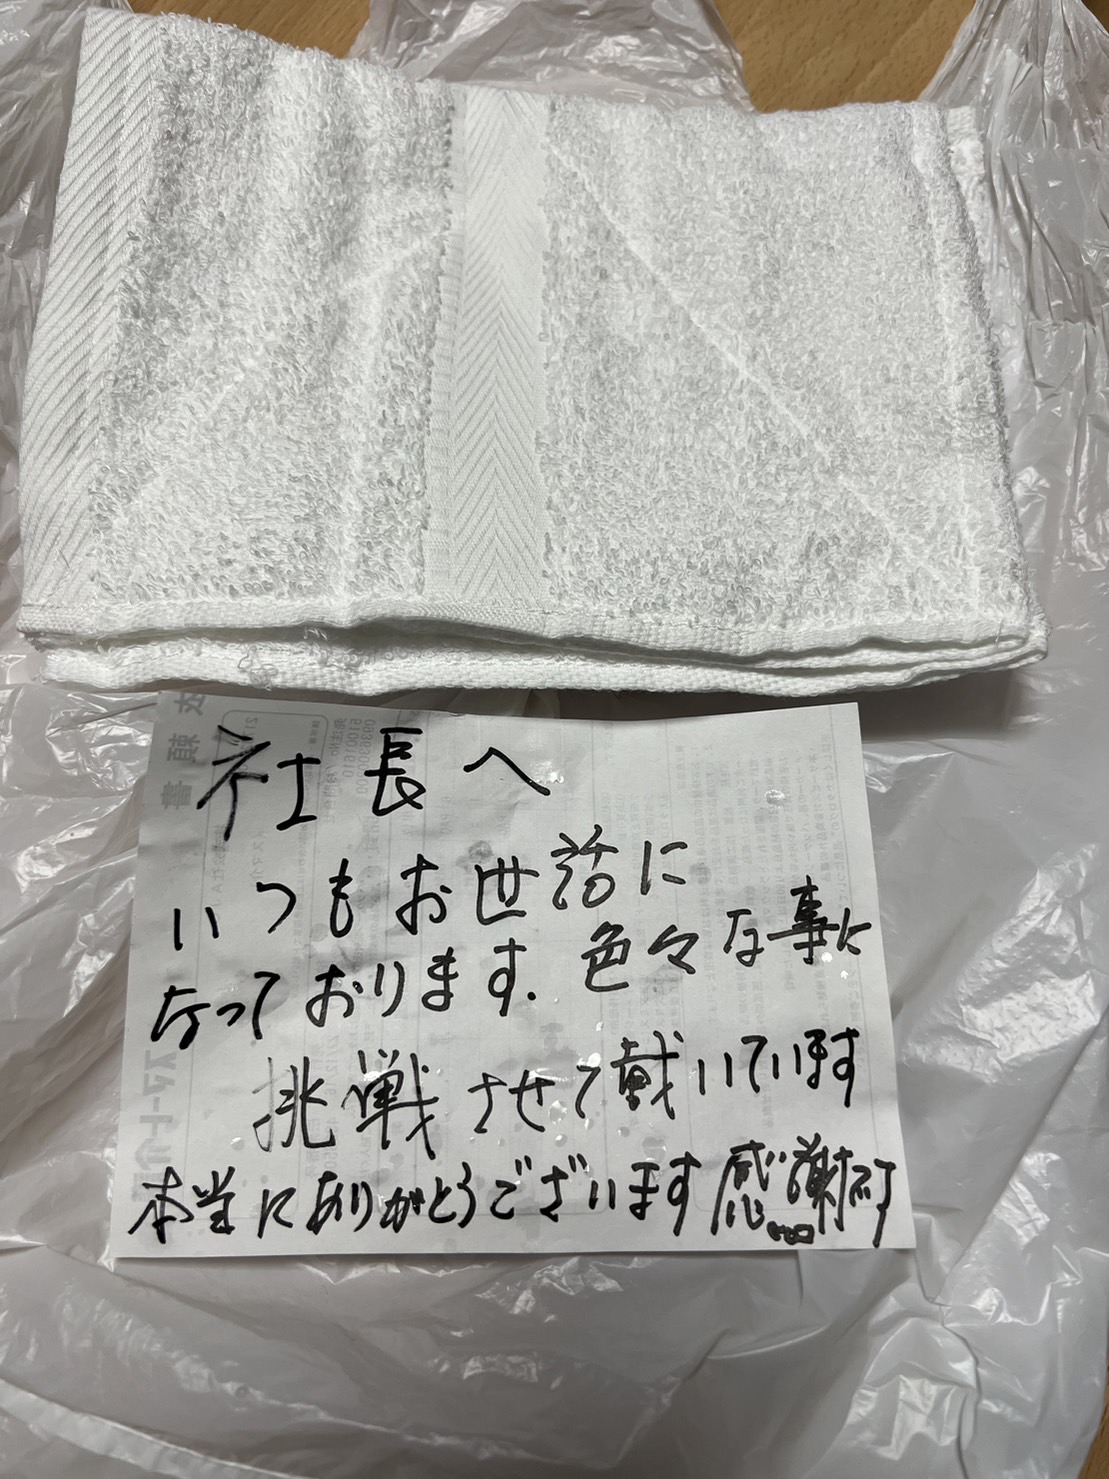 社長へ
いつもお世話に
なっております. 色々な事に
挑戦させて戴いています
本当にありがとうございます感謝です